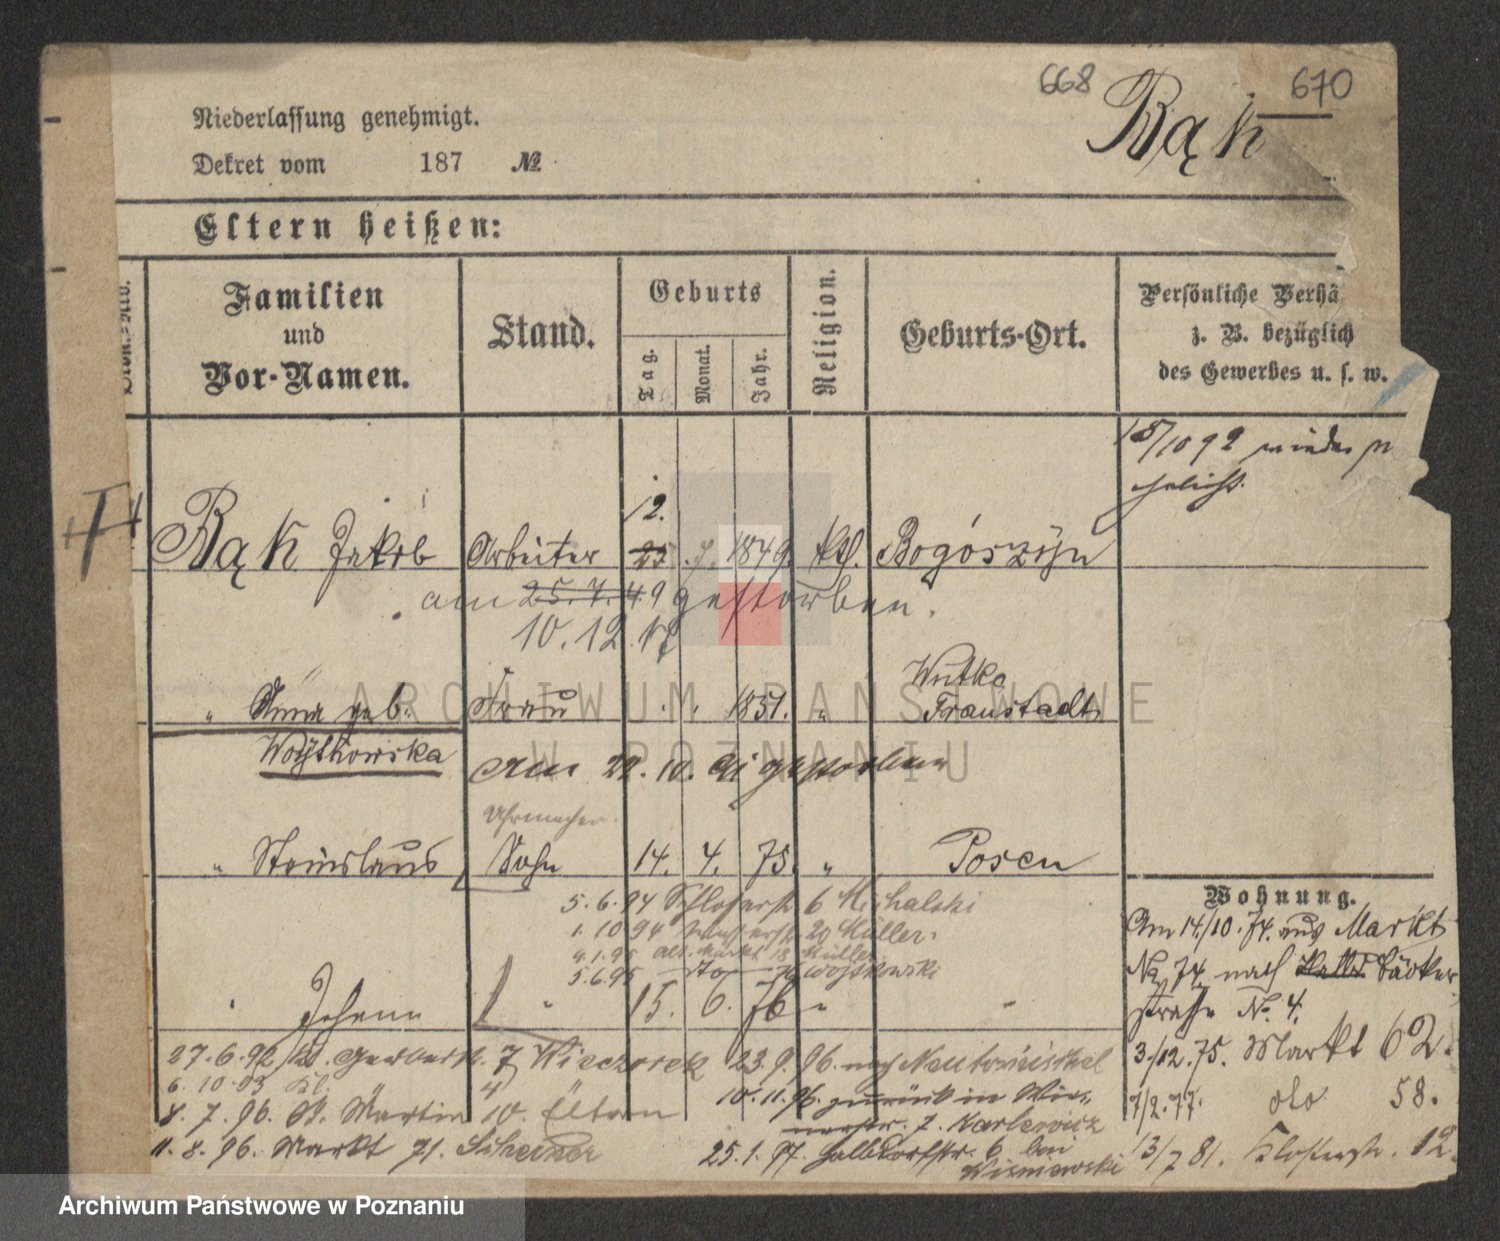 668 670
Rąk
Niederlassung genehmigt.
Dekret vom 187 №
Eltern heißen:
Familien und Vor-Namen.
Stand.
Geburts
Tag. Monat. Jahr.
Religion.
Geburts-Ort.
Persönliche Verhä
z. B. bezüglich
des Gewerbes u. s. w.
15/10 92 wieder
Rąk Jakob Arbeiter 12. 25. 7. 1849 kth. Bogószyn
am 25.7.49 gestorben.
10.12.17
" Anna geb. Frau 1851. " Wutke Fraustadt
Woytkowska
am 22.10.91 gestorben
Uhrmacher
" Stanislaus Sohn 14. 4. 75. " Posen
Wohnung.
Am 14./10.74. aus Markt
No 74 nach Bäcker
straße No. 4.
3./12.75. Markt 62.
7/2.77. do 58.
13/7 81. Klosterstr. 12.
5.6.94 Schlosserstr 6 Michalski
1.10 94 20 Müller
4.1.95 Alt. Markt 18 Müller
5.6.95 do Woytkowski
" Johann " 15. 6. 76 " "
27.6.92 Gerberstr. 7 Wieczorek 23.9.96. nach Neutomischel
6.10.93
8.7.96. St. Martin 10. Eltern 10.11.96. zurück in
7. Karlewicz
11.8.96. Markt 71. 25.1.97. Halbdorfstr. 6 bei
Wisniewski
ARCHIWUM PAŃSTWOWE
W POZNANIU
Archiwum Państwowe w Poznaniu